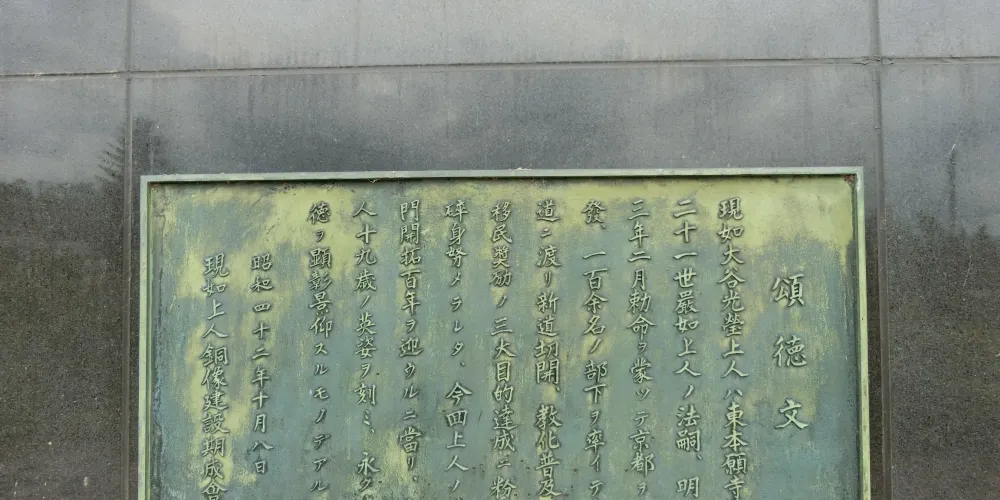 頌徳文
現如大谷光瑩上人ハ東本願寺
二十一世嚴如上人ノ法嗣、明
三年二月勅命ヲ蒙ツテ京都ヲ
發、一百余名ノ部下ヲ率イテ
道ニ渡リ新道切開、教化普及
移民奨励ノ三大目的達成ニ粉
砕身努メラレタ、今回上人ノ
門開拓百年ヲ迎ウルニ當リ、
人十九歳ノ英姿ヲ刻ミ、永ク
徳ヲ顕彰景仰スルモノデアル
昭和四十二年十月八日
現如上人銅像建設期成會